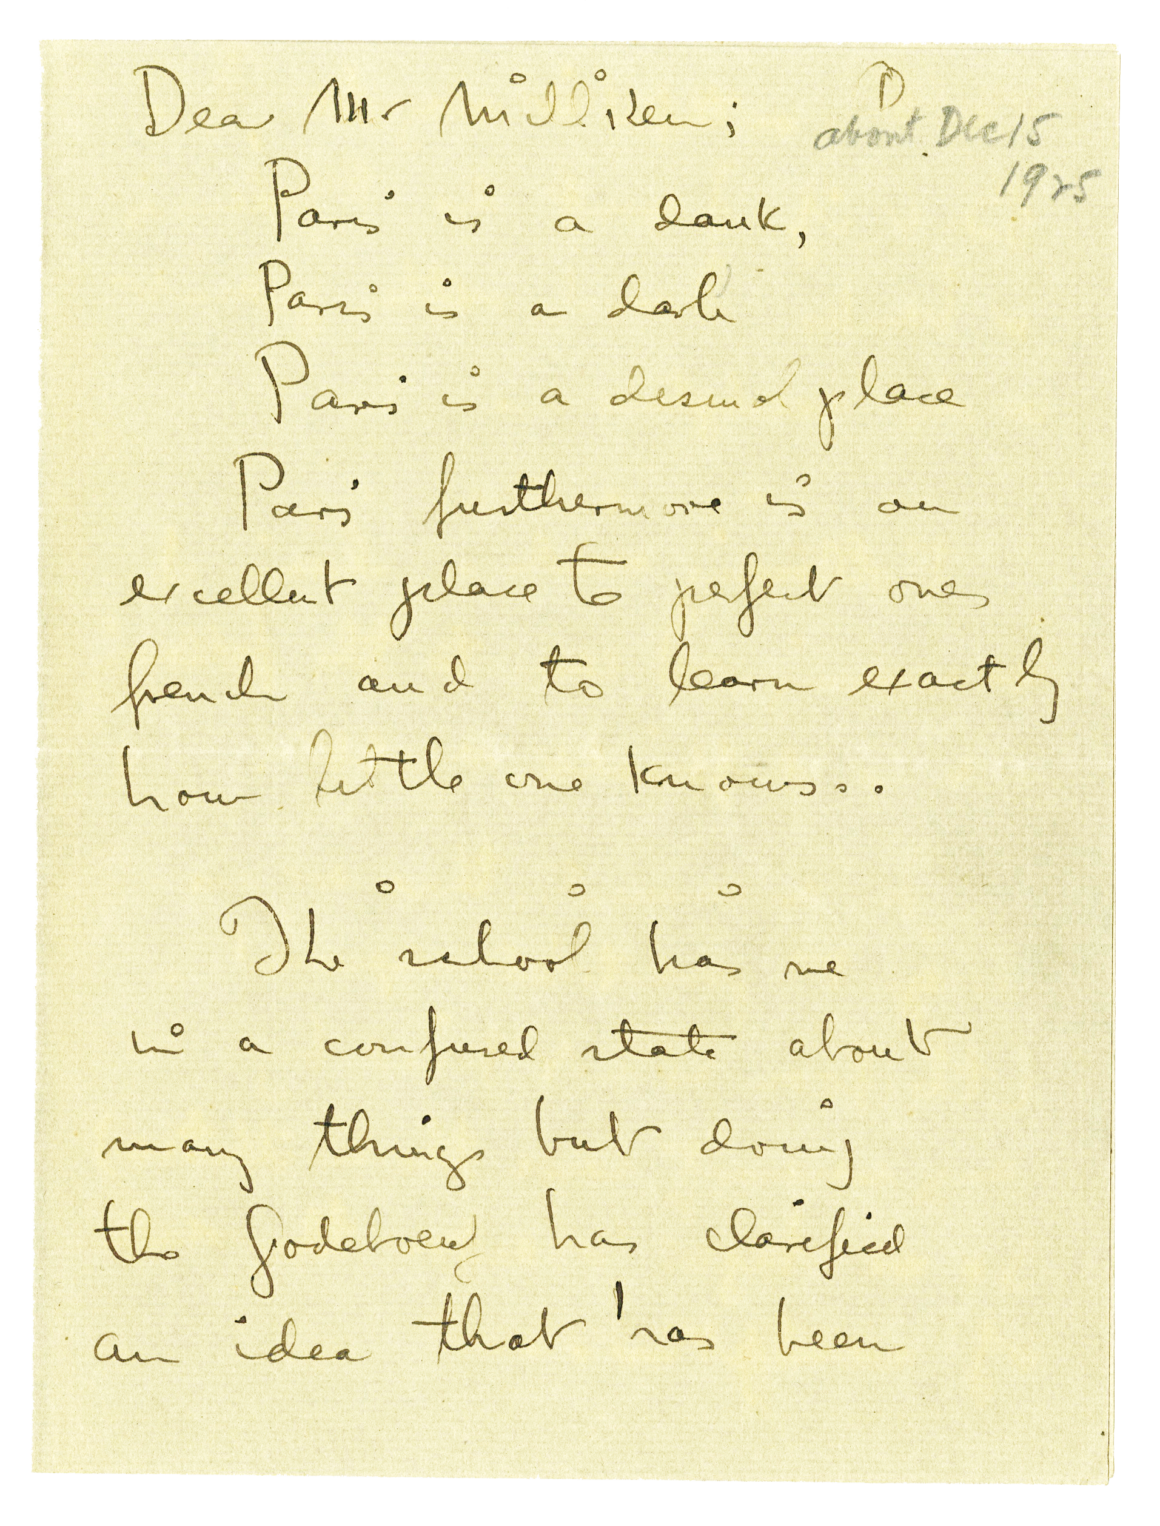 Dear Mr Milliken; D
about Dec 15
1925
Paris is a dank,
Paris is a dark
Paris is a place
Paris furthermore is an
excellent place to perfect ones
french and to learn exactly
how little one knows..
The school has me
in a confused state about
many things but doing
the has clarified
an idea that has been